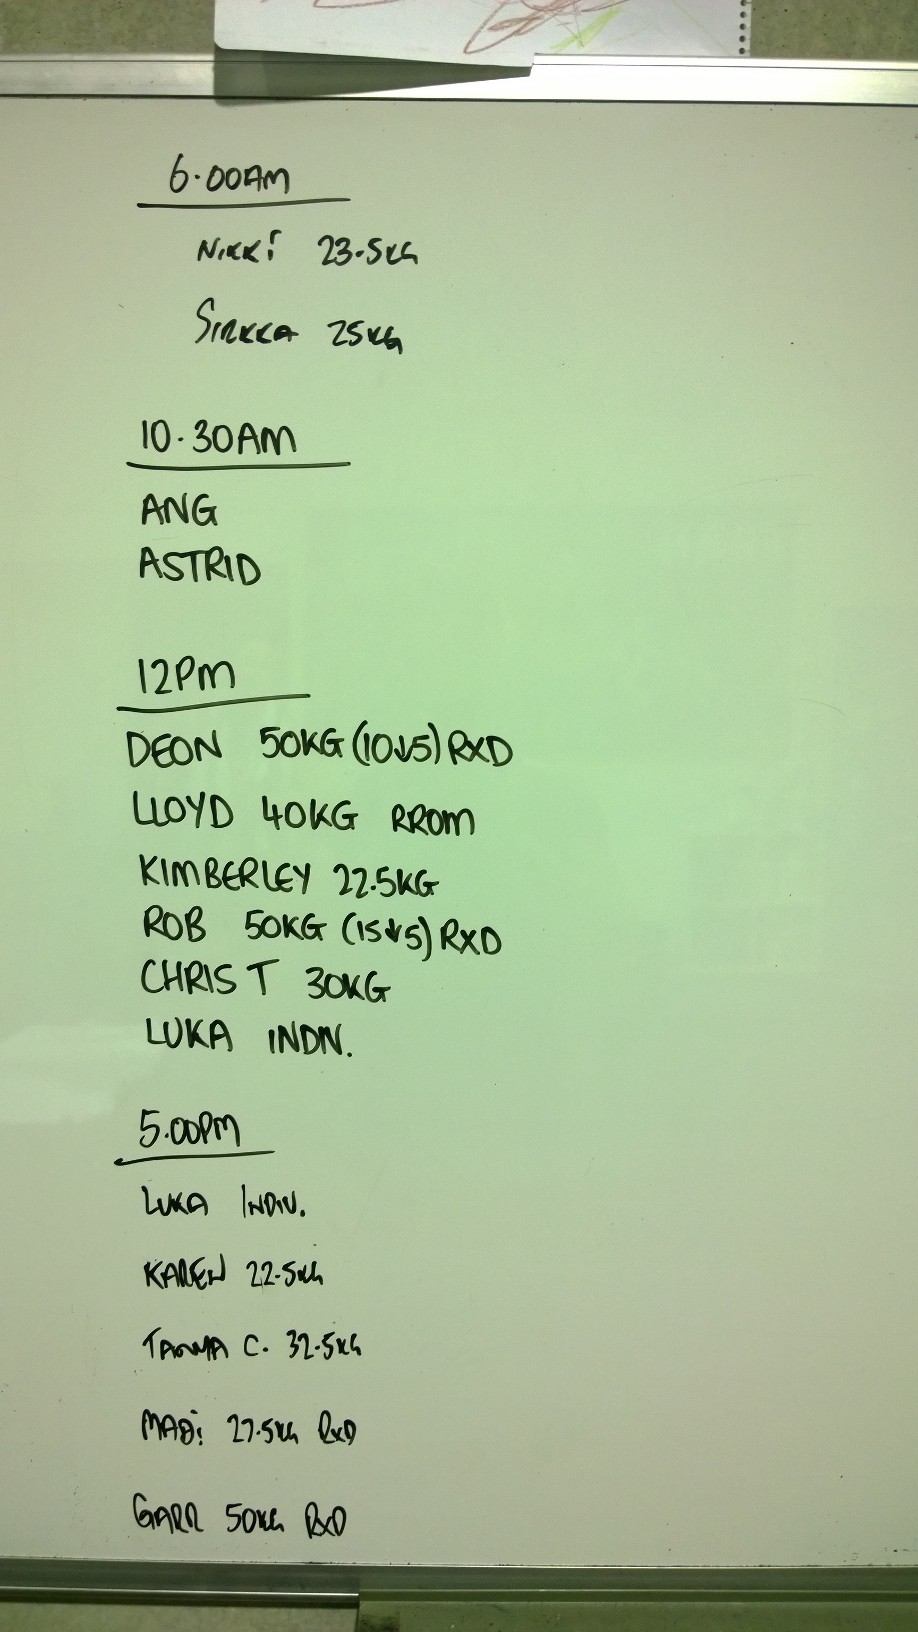 6.00AM
NIKKI 23.5KG
SIRKKA 25KG
10.30AM
ANG
ASTRID
12PM
DEON 50KG (10↓5) RXD
LLOYD 40KG RROM
KIMBERLEY 22.5KG
ROB 50KG (15↓5) RXD
CHRIS T 30KG
LUKA INDN.
5.00PM
LUKA INDIV.
KAREN 22.5KG
C. 32.5KG
MADI 27.5KG RXD
GARR 50KG RXD